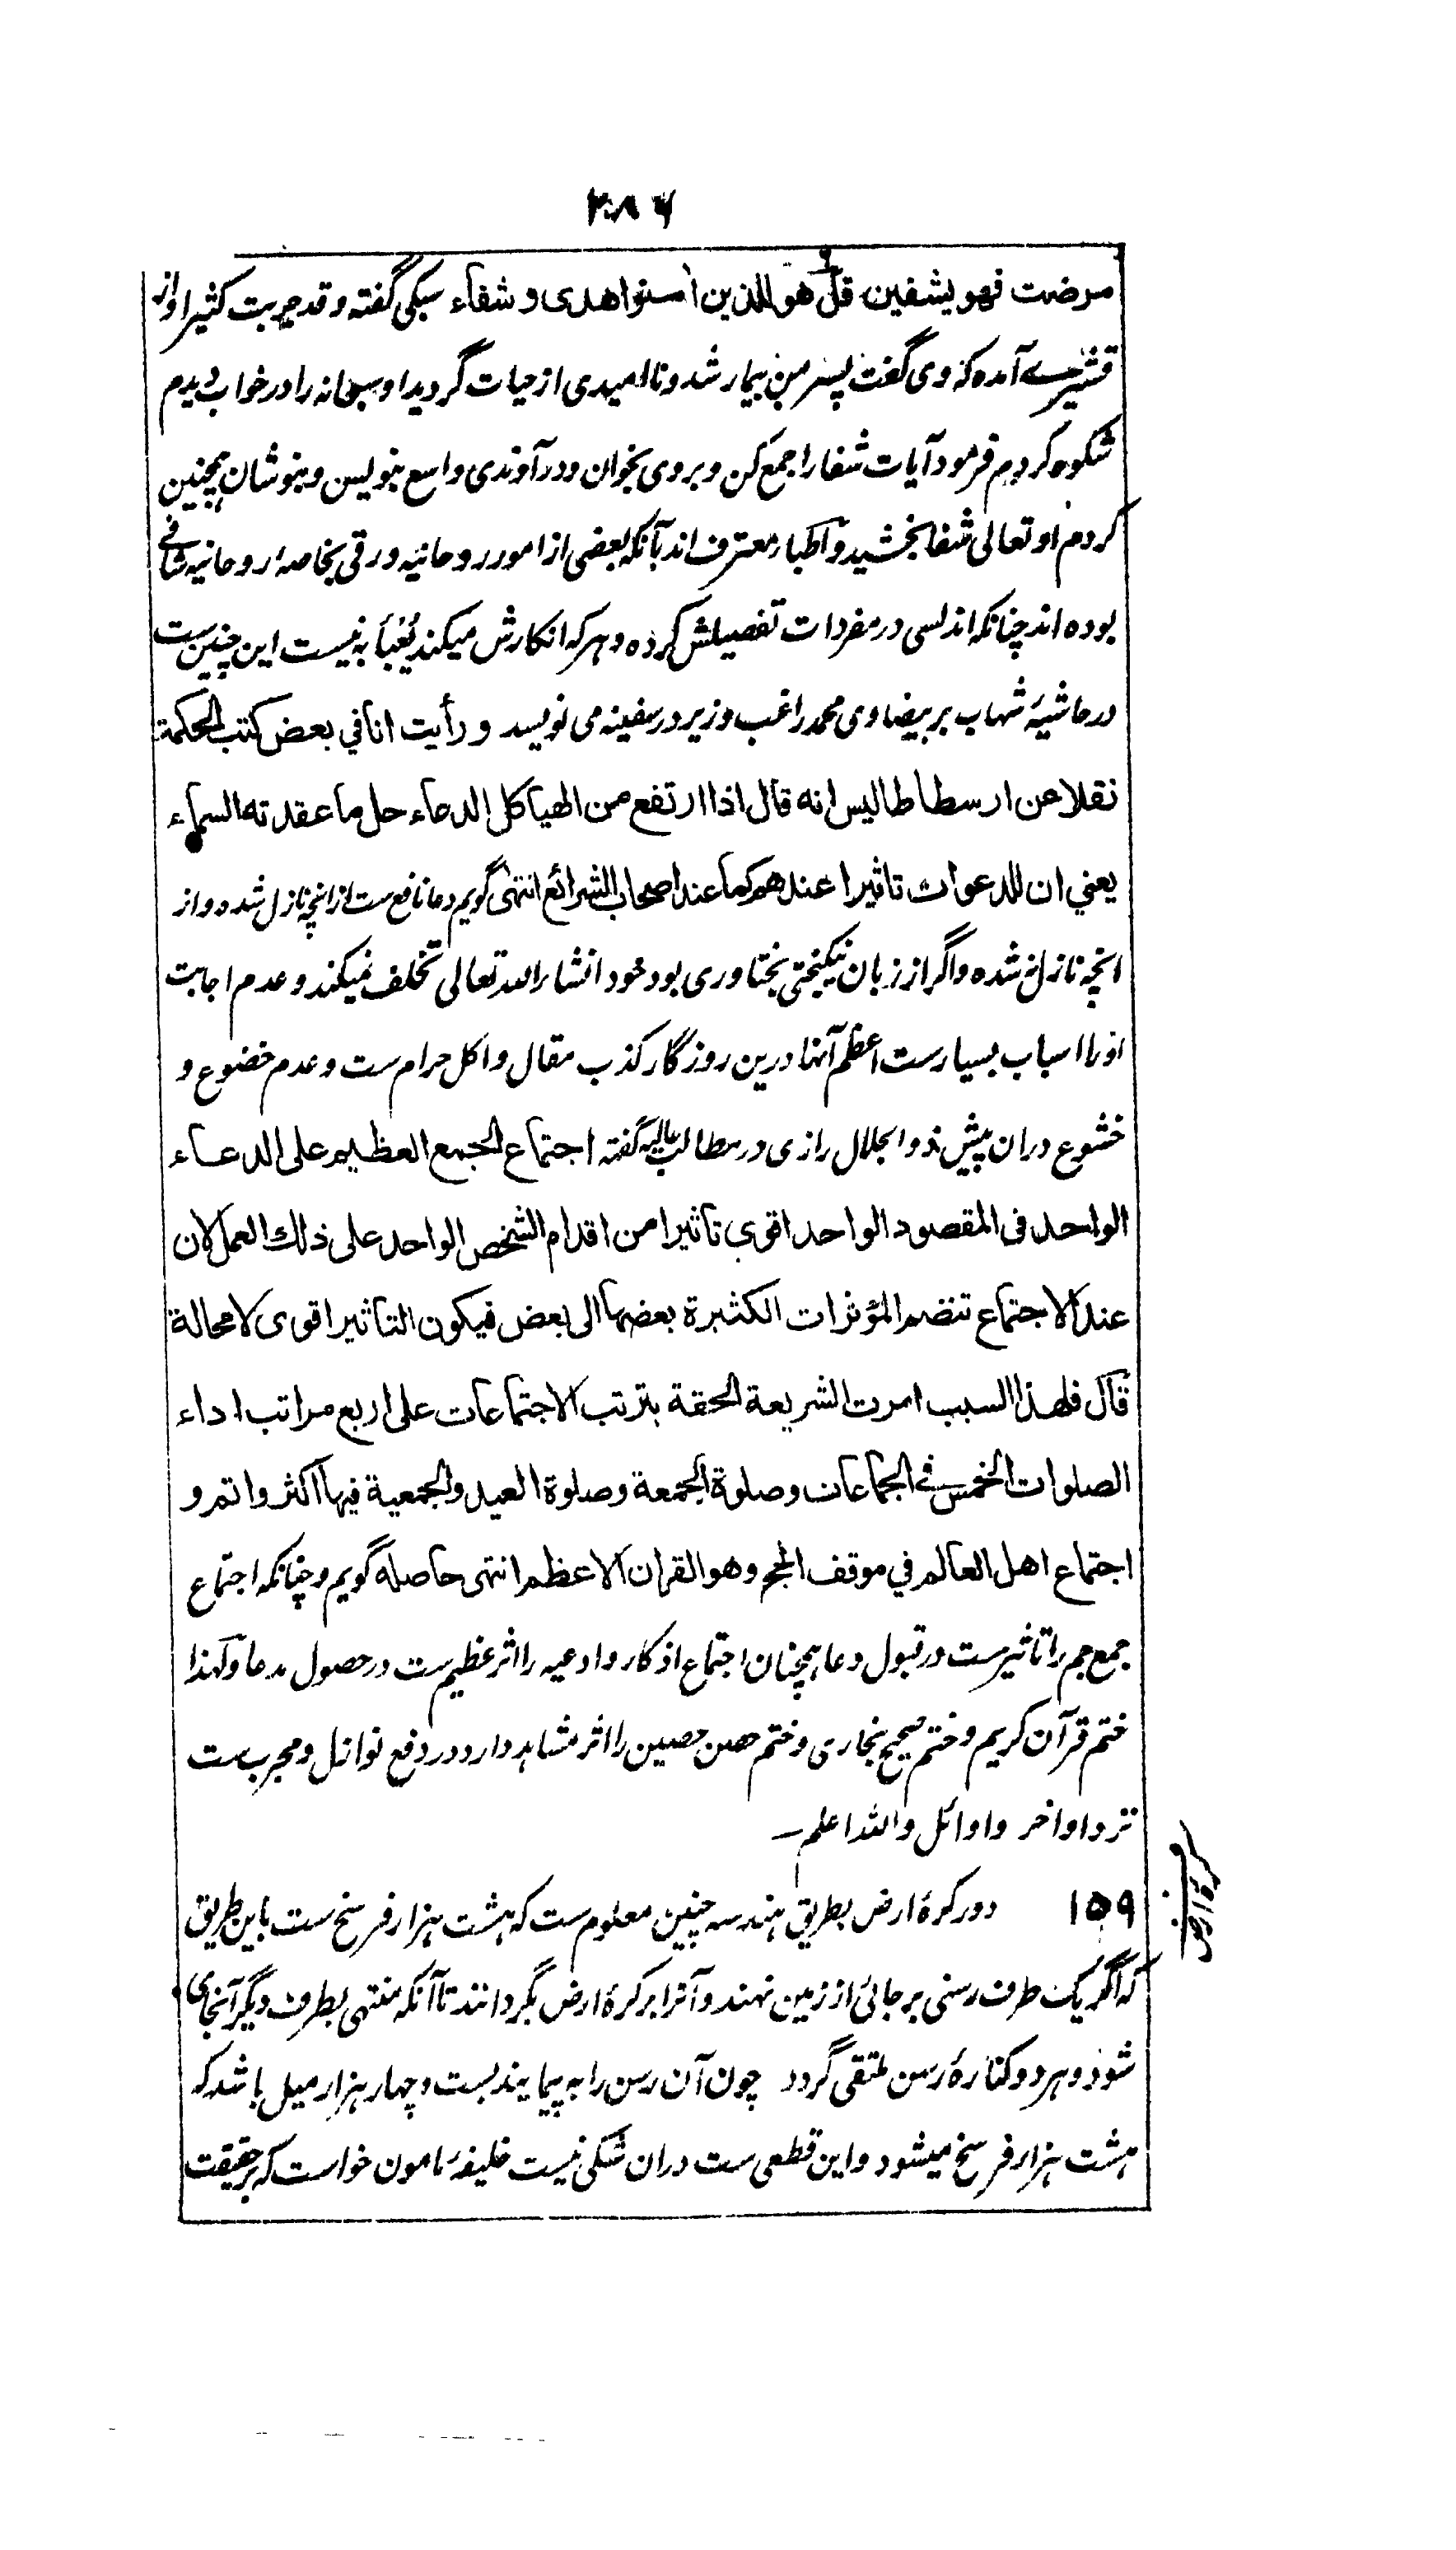 ۲۸۶
مرضت فهو يشفين، قل هو للذين امنوا هدى و شفاء سبكى گفته و قد جربت كثيرا و از
قشیری آمده که وی گفت پسر من بیمار شد و ناامیدی از حیات گردید او سبحانه را در خواب دیدم
شکوه کردم فرمود آیات شفا را جمع کن و بر وی بخوان و در آوندی واسع بنویس و بنوشان همچنین
کردم او تعالی شفا بخشید و اطبا معترف اند بآنکه بعضی از امور روحانیه و رقی بخاصه روحانیه شافی
بوده اند چنانکه اندلسی در مفردات تفصیلش کرده و هر که انکارش میکند یُعْبَأ به نیست این چنین ست
در حاشیهٔ شهاب بر بیضاوی محمد راغب وزیر در سفینه می نویسد و رأيت انا في بعض كتب الحكمة
نقلا عن ارسطاطاليس انه قال اذا ارتفع من الهياكل الدعاء حل ما عقدته السماء
يعني ان للدعوات تاثيرا عندهم كما عند اصحاب الشرائع انتهى گویم دعا نافع ست از انچه نازل شده و از
انچه نازل نشده و اگر از زبان نیکبختی بختاوری بود خود انشاء الله تعالی تخلف نمیکند و عدم اجابت
او را اسباب بسیارست اعظم آنها درین روزگار کذب مقال و اکل حرام ست و عدم خضوع و
خشوع دران پیش ذو الجلال رازی در مطالب عالیه گفته اجتماع الجمع العظيم على الدعاء
الواحد فى المقصود الواحد اقوى تاثيرا من اقدام الشخص الواحد على ذلك العمل لان
عند الاجتماع تنضم المؤثرات الكثيرة بعضها الى بعض فيكون التاثير اقوى لا محالة
قال فلهذا السبب امرت الشريعة الحقة بترتب الاجتماعات على اربع مراتب اداء
الصلوات الخمس في الجماعات وصلوة الجمعة وصلوة العيد والجمعية فيها اكثر واتم و
اجتماع اهل العالم في موقف الحج وهو القران الاعظم انتهى حاصله گویم و چنانکه اجتماع
جمع جم را تاثیرست در قبول دعا همچنان اجتماع اذکار و ادعیه را اثر عظیم ست در حصول مدعا و لهذا
ختم قرآن کریم و ختم صحیح بخاری و ختم حصن حصین را اثر مشاهد دارد در دفع نوازل و مجرب ست
نزد اواخر و اوائل والله اعلم
۱۵۹ دور کرهٔ ارض بطریق هندسه چنین معلوم ست که هشت هزار فرسخ ست باین طریق
که اگر یک طرف رسنی بر جائی از زمین نهند و آنرا بر کرهٔ ارض بگردانند تا آنکه منتهی بطرف دیگر آنجای
شود و هر دو کنارهٔ رسن ملتقی گردد چون آن رسن را به پیمایند بست و چهار هزار میل باشد که
هشت هزار فرسخ میشود و این قطعی ست دران شکی نیست خلیفه مامون خواست که بر حقیقت
کرهٔ ارض